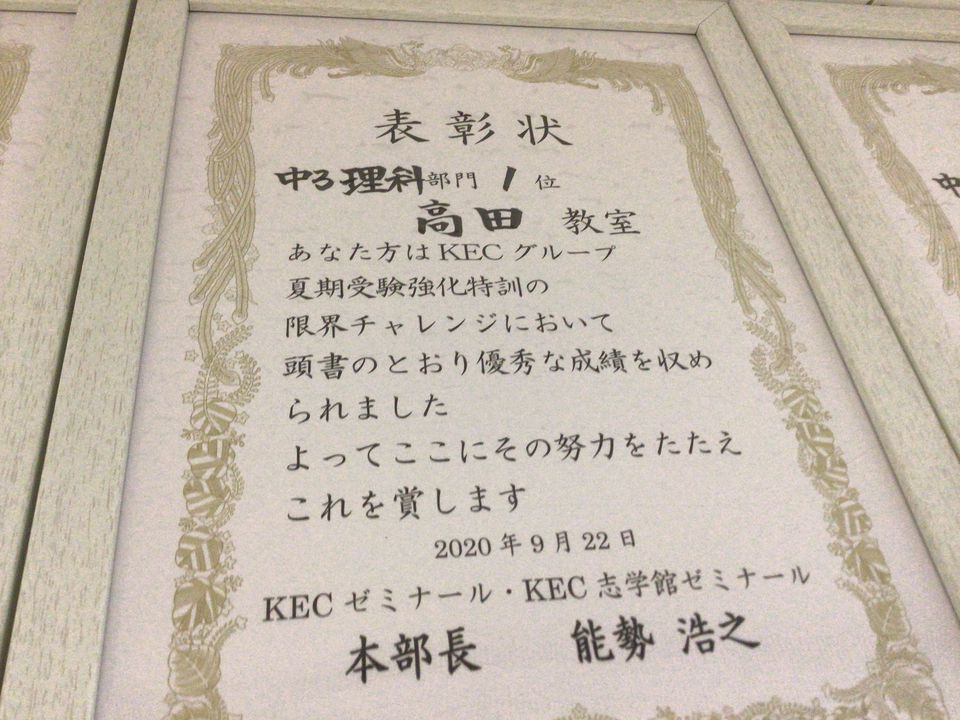 表彰状
中3理科部門 1位
高田 教室
あなた方はKECグループ
夏期受験強化特訓の
限界チャレンジにおいて
頭書のとおり優秀な成績を収め
られました
よってここにその努力をたたえ
これを賞します
2020年9月22日
KECゼミナール・KEC志学館ゼミナール
本部長 能勢 浩之
中